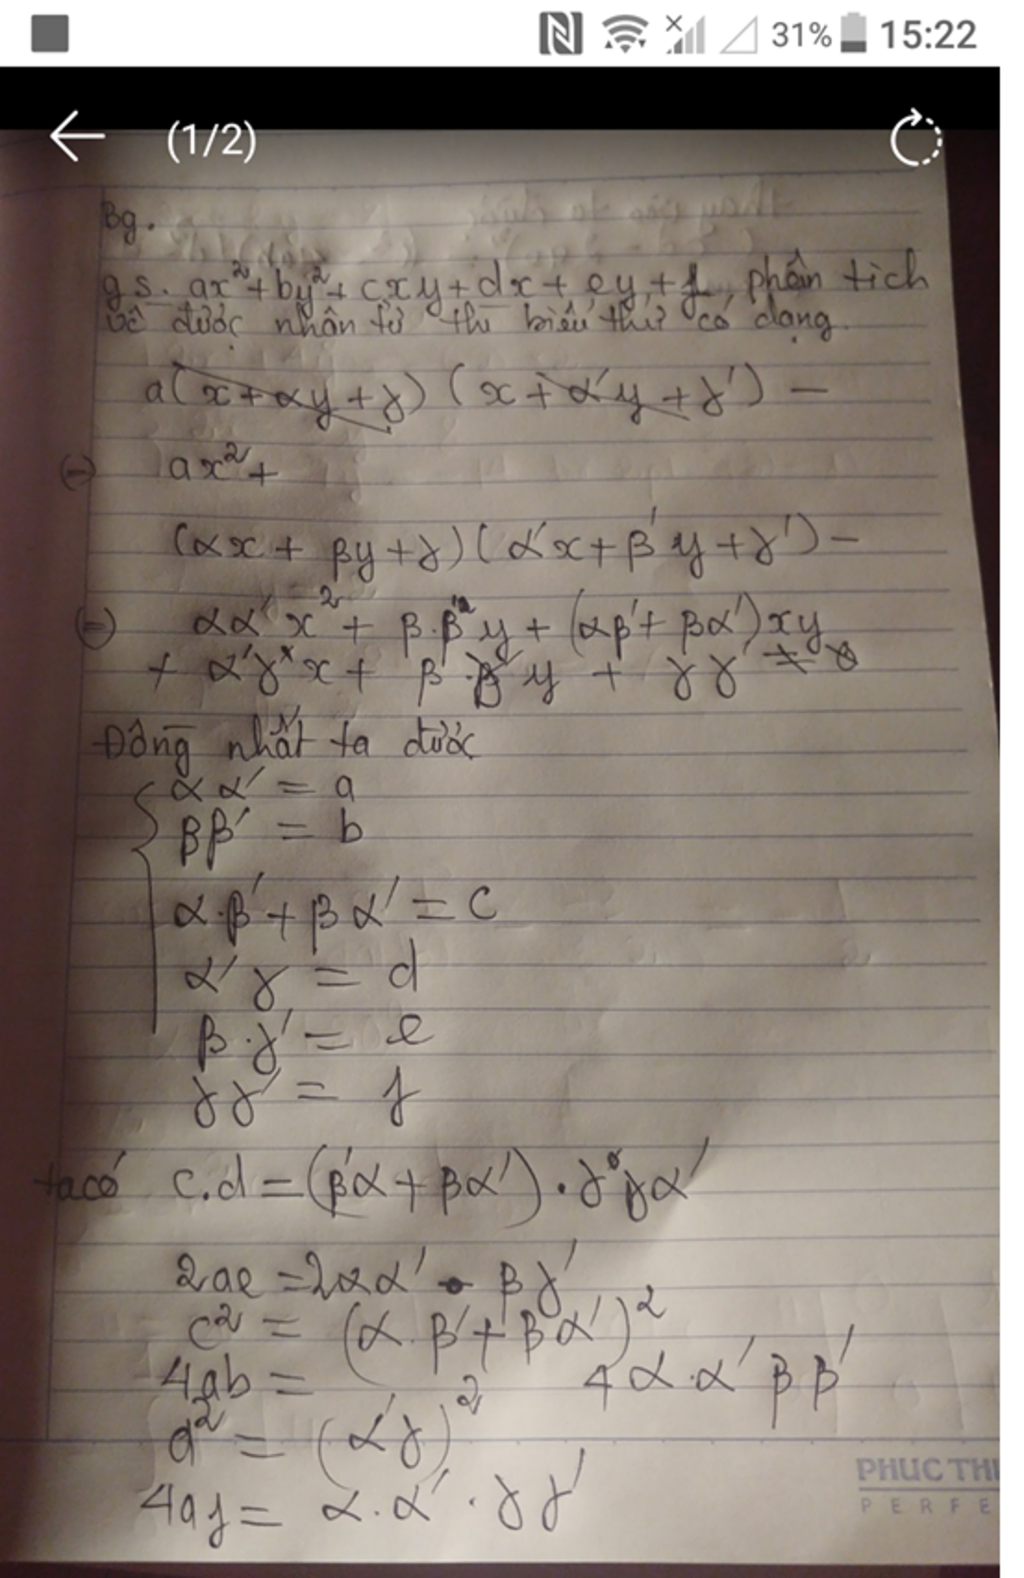 31% 15:22
(1/2)
Bg.
g.s. ax²+by²+cxy+dx+ey+f phân tích
về được nhân tử thì biểu thư có dạng.
a(x+αy+γ) (x+α'y+γ') –
(=) ax²+
(αx + βy+γ)(α'x+β'y+γ') –
(=) αα'x² + β.β'²y + (αβ'+ βα')xy
+ α'γ x + β y + γγ'
Đồng nhất ta được
αα' = a
ββ' = b
α.β'+βα' = c
α'γ = d
β.γ' = e
γγ' = f
ta có c.d=(β'α+βα').γα'
2ae =2αα' βγ'
c² = (α.β'+βα')²
4ab = 4α.α'ββ'
d² = (α'γ)²
4af= α.α'.γγ'
PHUC TH
PERFE